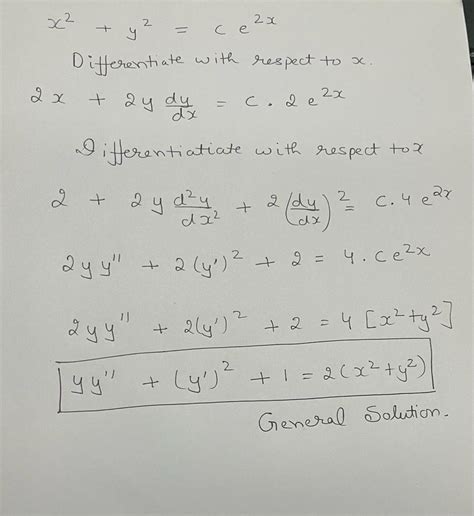 x² + y² = c e²ˣ
Differentiate with respect to x.
2x + 2y dy/dx = c . 2 e²ˣ
Differentiatiate with respect to x
2 + 2y d²y/dx² + 2(dy/dx)² = c.4 e²ˣ
2yy" + 2(y')² + 2 = 4 . c e²ˣ
2yy" + 2(y')² + 2 = 4 [x²+y²]
yy" + (y')² + 1 = 2(x²+y²)
General Solution.